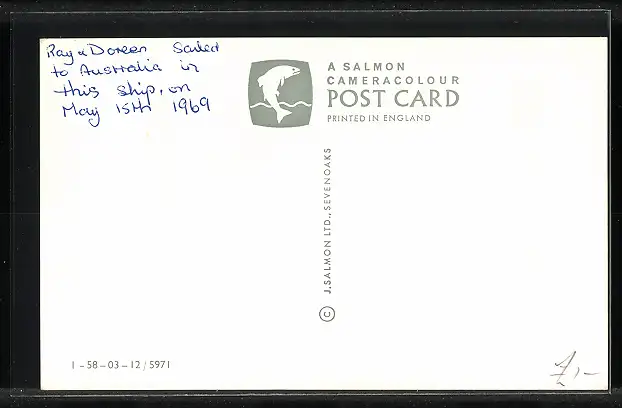 Ray & Doreen Sailed
to Australia in
this ship, on
May 15th 1969
A SALMON
CAMERACOLOUR
POST CARD
PRINTED IN ENGLAND
© J. SALMON LTD., SEVENOAKS
1 - 58 - 03 - 12 / 5971